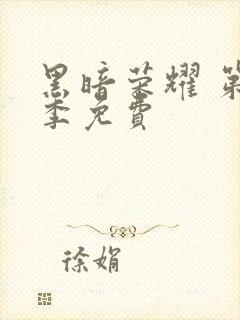 黑暗荣耀 第
季免費
徐娟